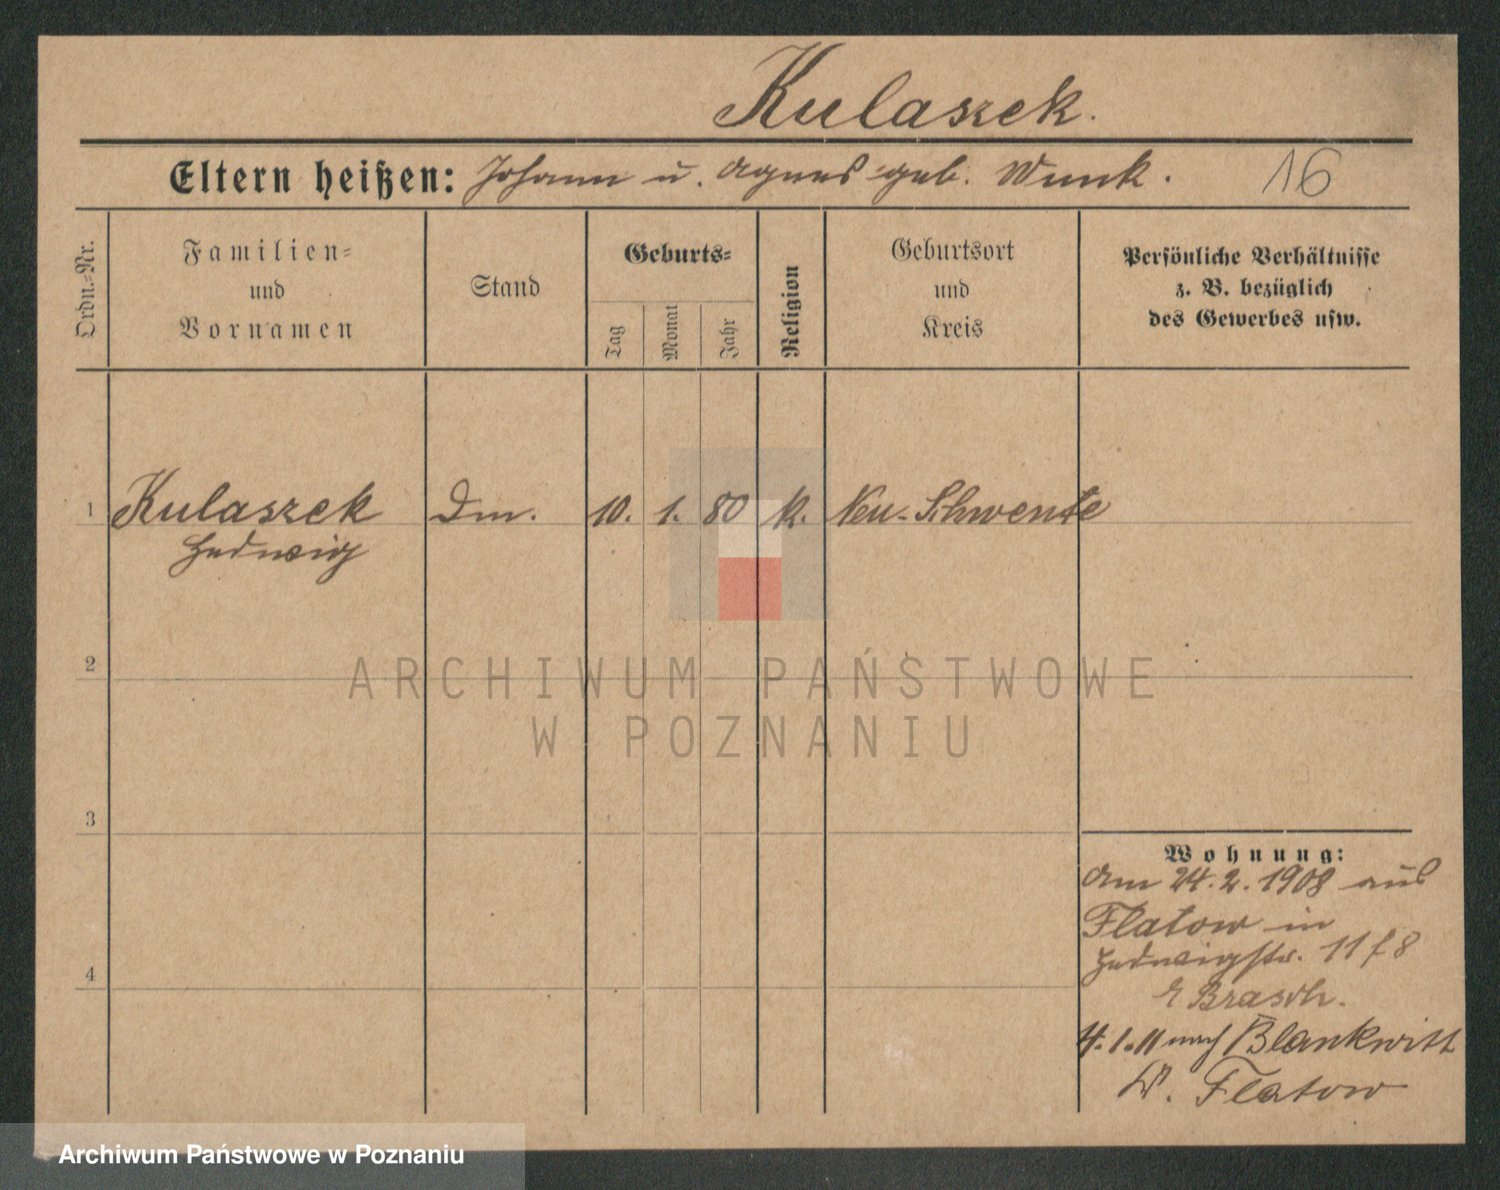 Kulaszek.
Eltern heißen: Johann u. Agnes geb. Wunk. 16
Ordn.-Nr.
Familien-
und
Vornamen
Stand
Geburts-
Tag
Monat
Jahr
Religion
Geburtsort
und
Kreis
Persönliche Verhältnisse
z. B. bezüglich
des Gewerbes usw.
1 Kulaszek Dm. 10. 1. 80 k. Neu-Schwente
Hedwig
2
3
4
Wohnung:
Am 24.2.1908 aus
Flatow in
Hedwigstr. 11 f 8
Brasch.
4.1.11 nach Blankwitt
Kr. Flatow
ARCHIWUM PAŃSTWOWE
W POZNANIU
Archiwum Państwowe w Poznaniu